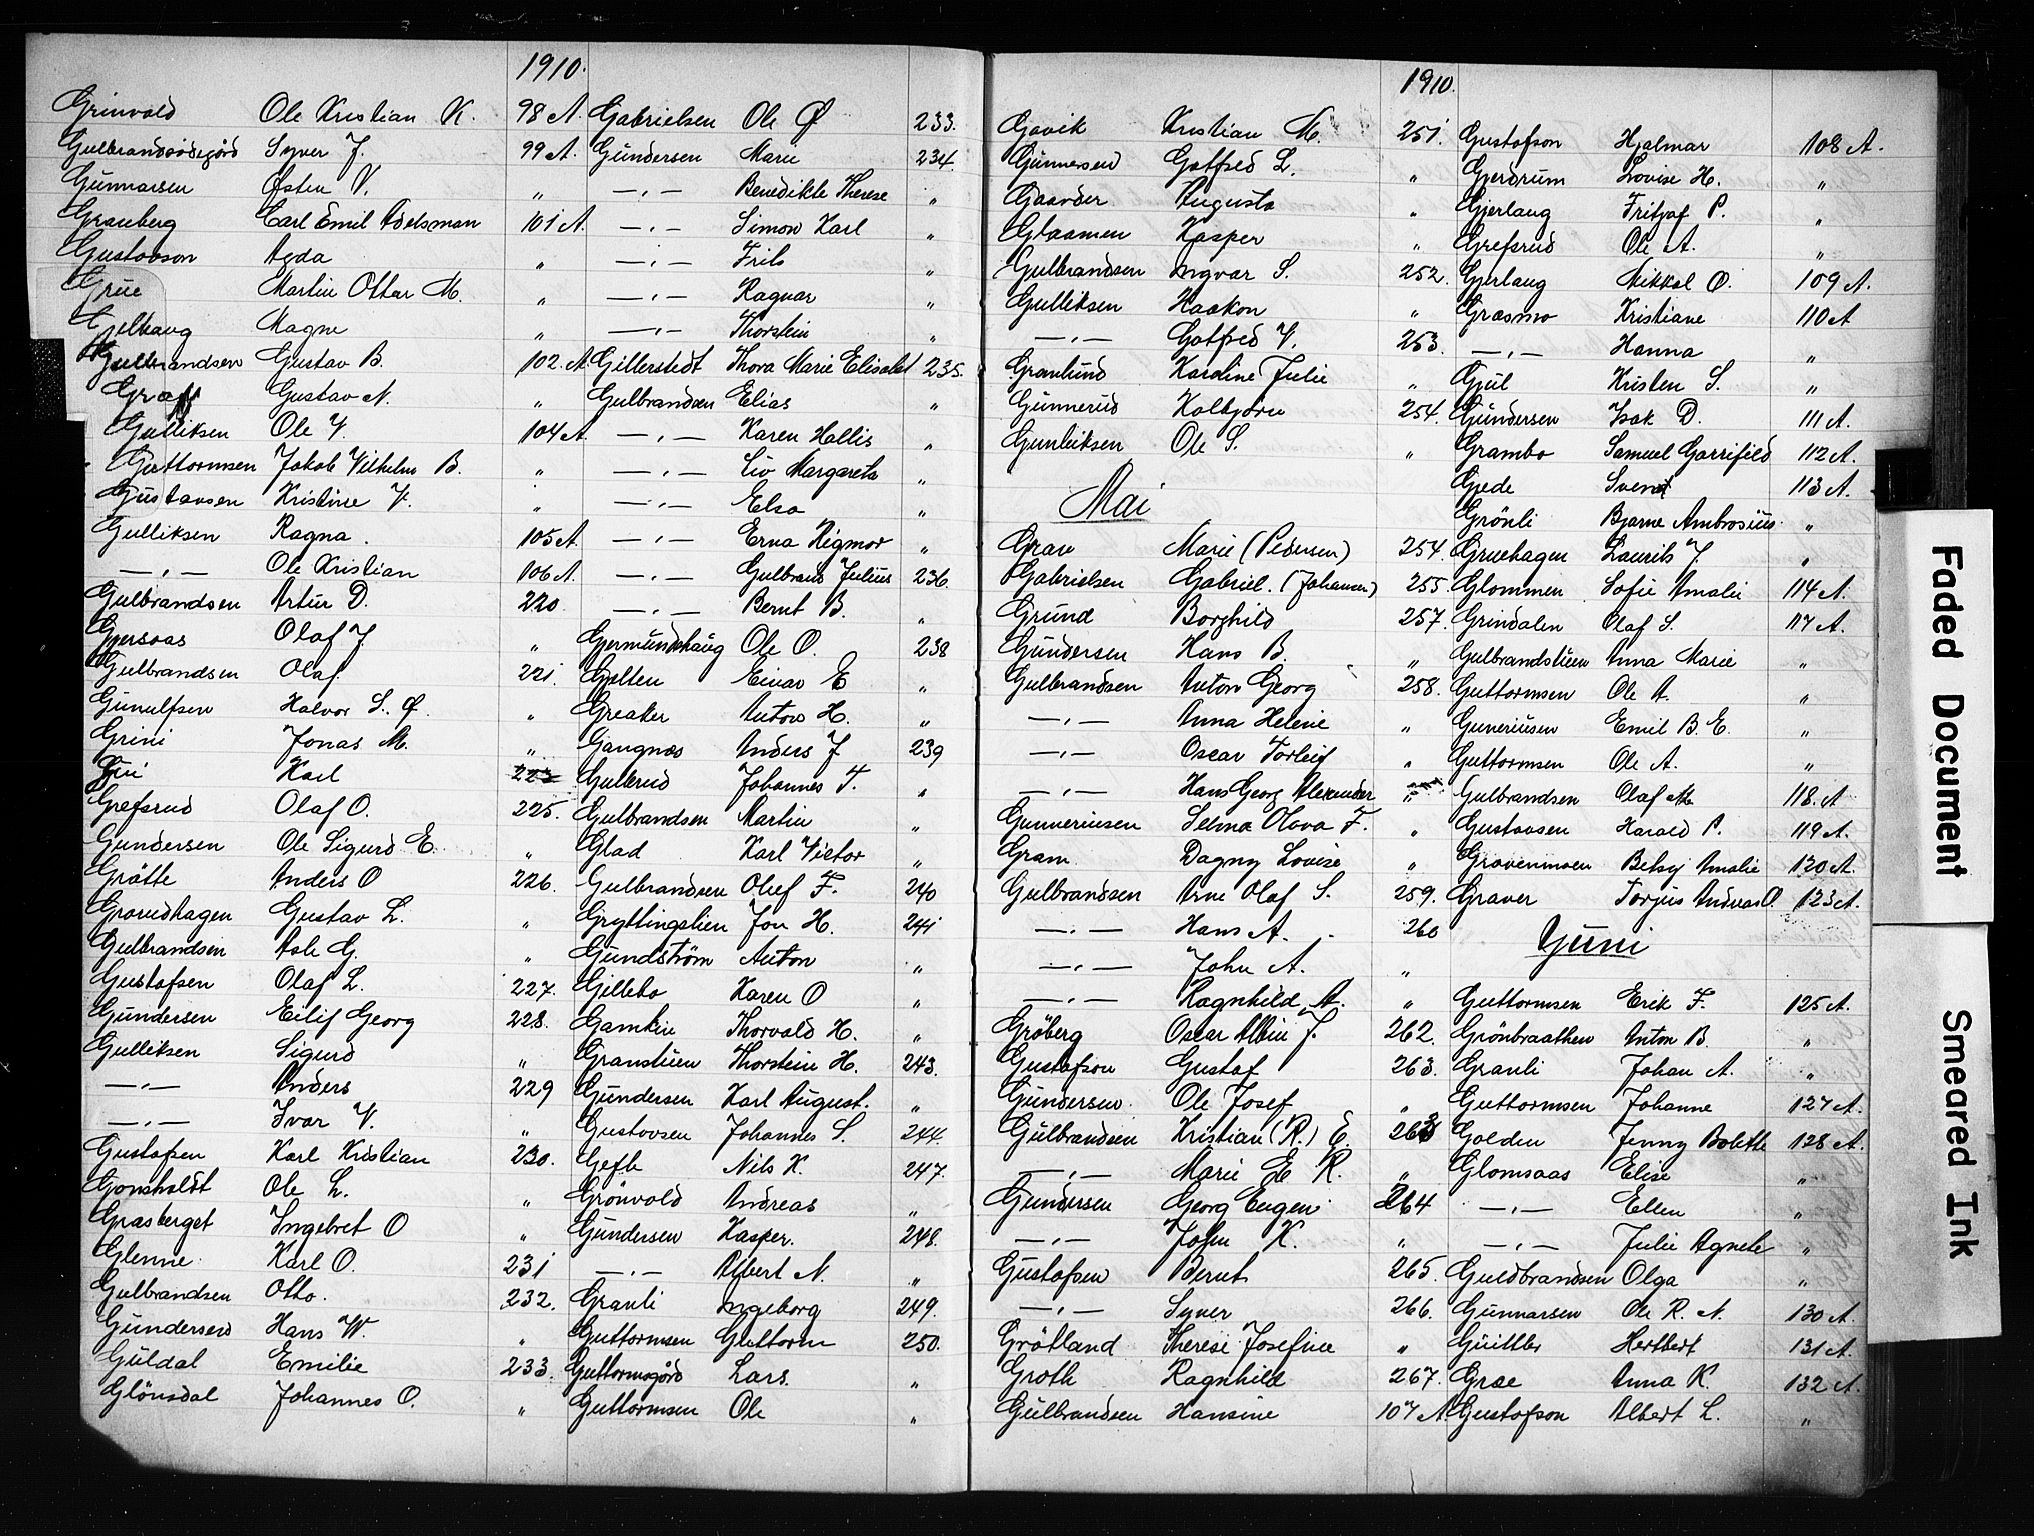 1910.
Grinvold Ole Kristian K. 98 A.
Gulbrandsødegård Syver J. 99 A.
Gunnarsen Østen V. "
Granberg Carl Emil Adelsman 101 A.
Gustavson Agda "
Grue Martin Ottar M. "
Gjelhaug Magne "
Gulbrandsen Gustav B. 102 A.
Graff Gustav A. "
Gulliksen Ole T. 104 A.
Guttormsen Jakob Vilhelm B. "
Gustavsen Kristine T. "
Gulliksen Ragna. 105 A.
—„— Ole Kristian 106 A.
Gulbrandsen Artur D. 220
Gjersøas Olaf J. "
Gulbrandsen Olaf 221.
Gunulfsen Halvor S. Ø. "
Grini Jonas M. "
Gui Karl 223
Grefsrud Olaf O. 225.
Gundersen Ole Sigurd E. "
Gråtte Anders O 226.
Gravdhagen Gustav L. "
Gulbrandsen Asle G. "
Gustafsen Olaf L. 227.
Gundersen Eilif Georg 228.
Gulliksen Sigurd "
—„— Anders 229
—„— Ivar V. "
Gustafsen Karl Kristian 230.
Gonsholdt Ole L. "
Grasberget Ingebret O "
Glenne Karl O. 231
Gulbrandsen Otto. 232.
Gundersen Hans W. "
Guldal Emilie 233.
Glönsdal Johannes O. "
Gabrielsen Ole Ø 233.
Gundersen Marie 234.
—„— Benedikte Therese "
—„— Simon Karl "
—„— Frits "
—„— Ragnar "
—„— Thorstein "
Gillerstedt Thora Marie Elisabet 235.
Gulbrandsen Elias "
—„— Karen Hallis "
—„— Liv Margareta "
—„— Elsa "
—„— Erna Rigmor "
—„— Gulbrand Julius 236.
—„— Bernt B. "
Gjermundshaug Ole O. 238
Gjelten Einar E "
Greaker Anton H. "
Gangnæs Anders J 239
Gullerud Johannes T. "
Gulbrandsen Martin "
Glad Karl Victor "
Gulbrandsen Oluf F. 240
Gryttingslien Jon H. 241
Gundström Anton "
Gillebo Karen O "
Gamkin Thorvald H. "
Granstuen Thorstein H. 243.
Gundersen Karl August. "
Gustavsen Johannes S. 244.
Gefle Nils K. 247.
Grönvold Andreas "
Gundersen Kasper. 248.
—„— Albert N. "
Granli Ingeborg 249.
Guttormsen Guttorm 250.
Guttormsgård Lars. "
Guttormsen Ole "
1910.
Gavik Kristian M. 251.
Gunnersen Gotfred L. "
Gaarder Augusta "
Glaamen Kasper "
Gulbrandsen Ingvar S. 252.
Gulliksen Haakon "
—„— Gotfred T. 253.
Granlund Karoline Julie "
Gunnerud Kolbjörn 254.
Gunleiksen Ole S. "
Mai
Grav Marie (Pedersen) 254.
Gabrielsen Gabriel. (Johansen) 255.
Grund Borghild 257.
Gundersen Hans B. "
Gulbrandsen Anton Georg 258.
—„— Anna Helene "
—„— Oscar Torleif "
—„— Hans Georg Alexander "
Gunneriusen Selma Olava F. "
Gram Dagny Lovise "
Gulbrandsen Arne Olaf S. 259.
—„— Hans A. 260
—„— John A. "
—„— Ragnhild A. "
Gröberg Oscar Albin J. 262.
Gustafson Gustaf 263.
Gundersen Ole Josef "
Gulbrandsen Kristian (R.) E. 263
—„— Marie E R. "
Gundersen Georg Eugen 264
—„— John K. "
Gustafsen Bernt 265.
—„— Syver 266.
Gråtland Therese Josefine "
Groth Ragnhild 267.
Gulbrandsen Hansine 107 A.
Gustafson Hjalmar 108 A.
Gjerdrum Lovise H. "
Gjerlaug Fritjof P. "
Grefsrud Ole A. "
Gjerlaug Mikkel O. 109 A.
Græsmo Kristiane 110 A
—„— Hanna "
Gjul Kristen S. "
Gundersen Isak D. 111 A.
Grambo Samuel Garrifild 112 A.
Gjede Svend 113 A.
Grönli Bjarne Ambrosius. "
Gruehagen Laurits J. "
Glommen Sofie Amalie 114 A.
Grindalen Olaf S. 117 A.
Gulbrandstuen Anna Marie "
Guttormsen Ole A. "
Guneriusen Emil B. E. "
Guttormsen Ole A. "
Gulbrandsen Olaf M. 118. A
Gustavsen Harald P. 119 A.
Gravenmoen Betsy Amalie 120 A.
Graver Torjus Andreas O. 123 A.
Juni
Guttormsen Erik F. 125 A.
Grönbraathen Anton B. "
Granli Johan A. "
Guttormsen Johanne 127 A.
Golden Jenny Bolette 128 A.
Glomsaas Elise "
—„— Ellen "
—„— Julie Agnete "
Guldbrandsen Olga "
Gunnarsen Ole R. A. 130 A.
Guittler Hertbert 131 A.
Grae Anna K. 132 A.
Gustafson Albert L. "
Faded Document
Smeared Ink